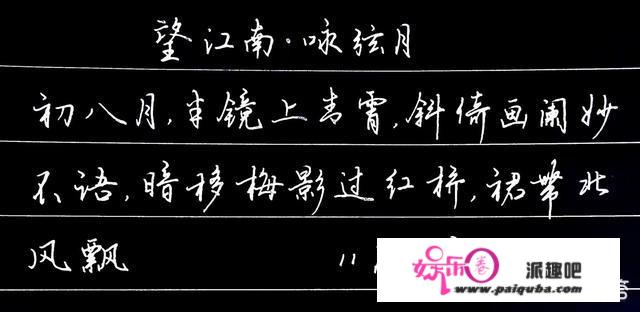 望江南·咏弦月
初八月,半镜上青霄,斜倚画阑妙
不语,暗移梅影过红桥,裙帶北
风飘
娱乐圈 派趣吧
www.paiquba.com